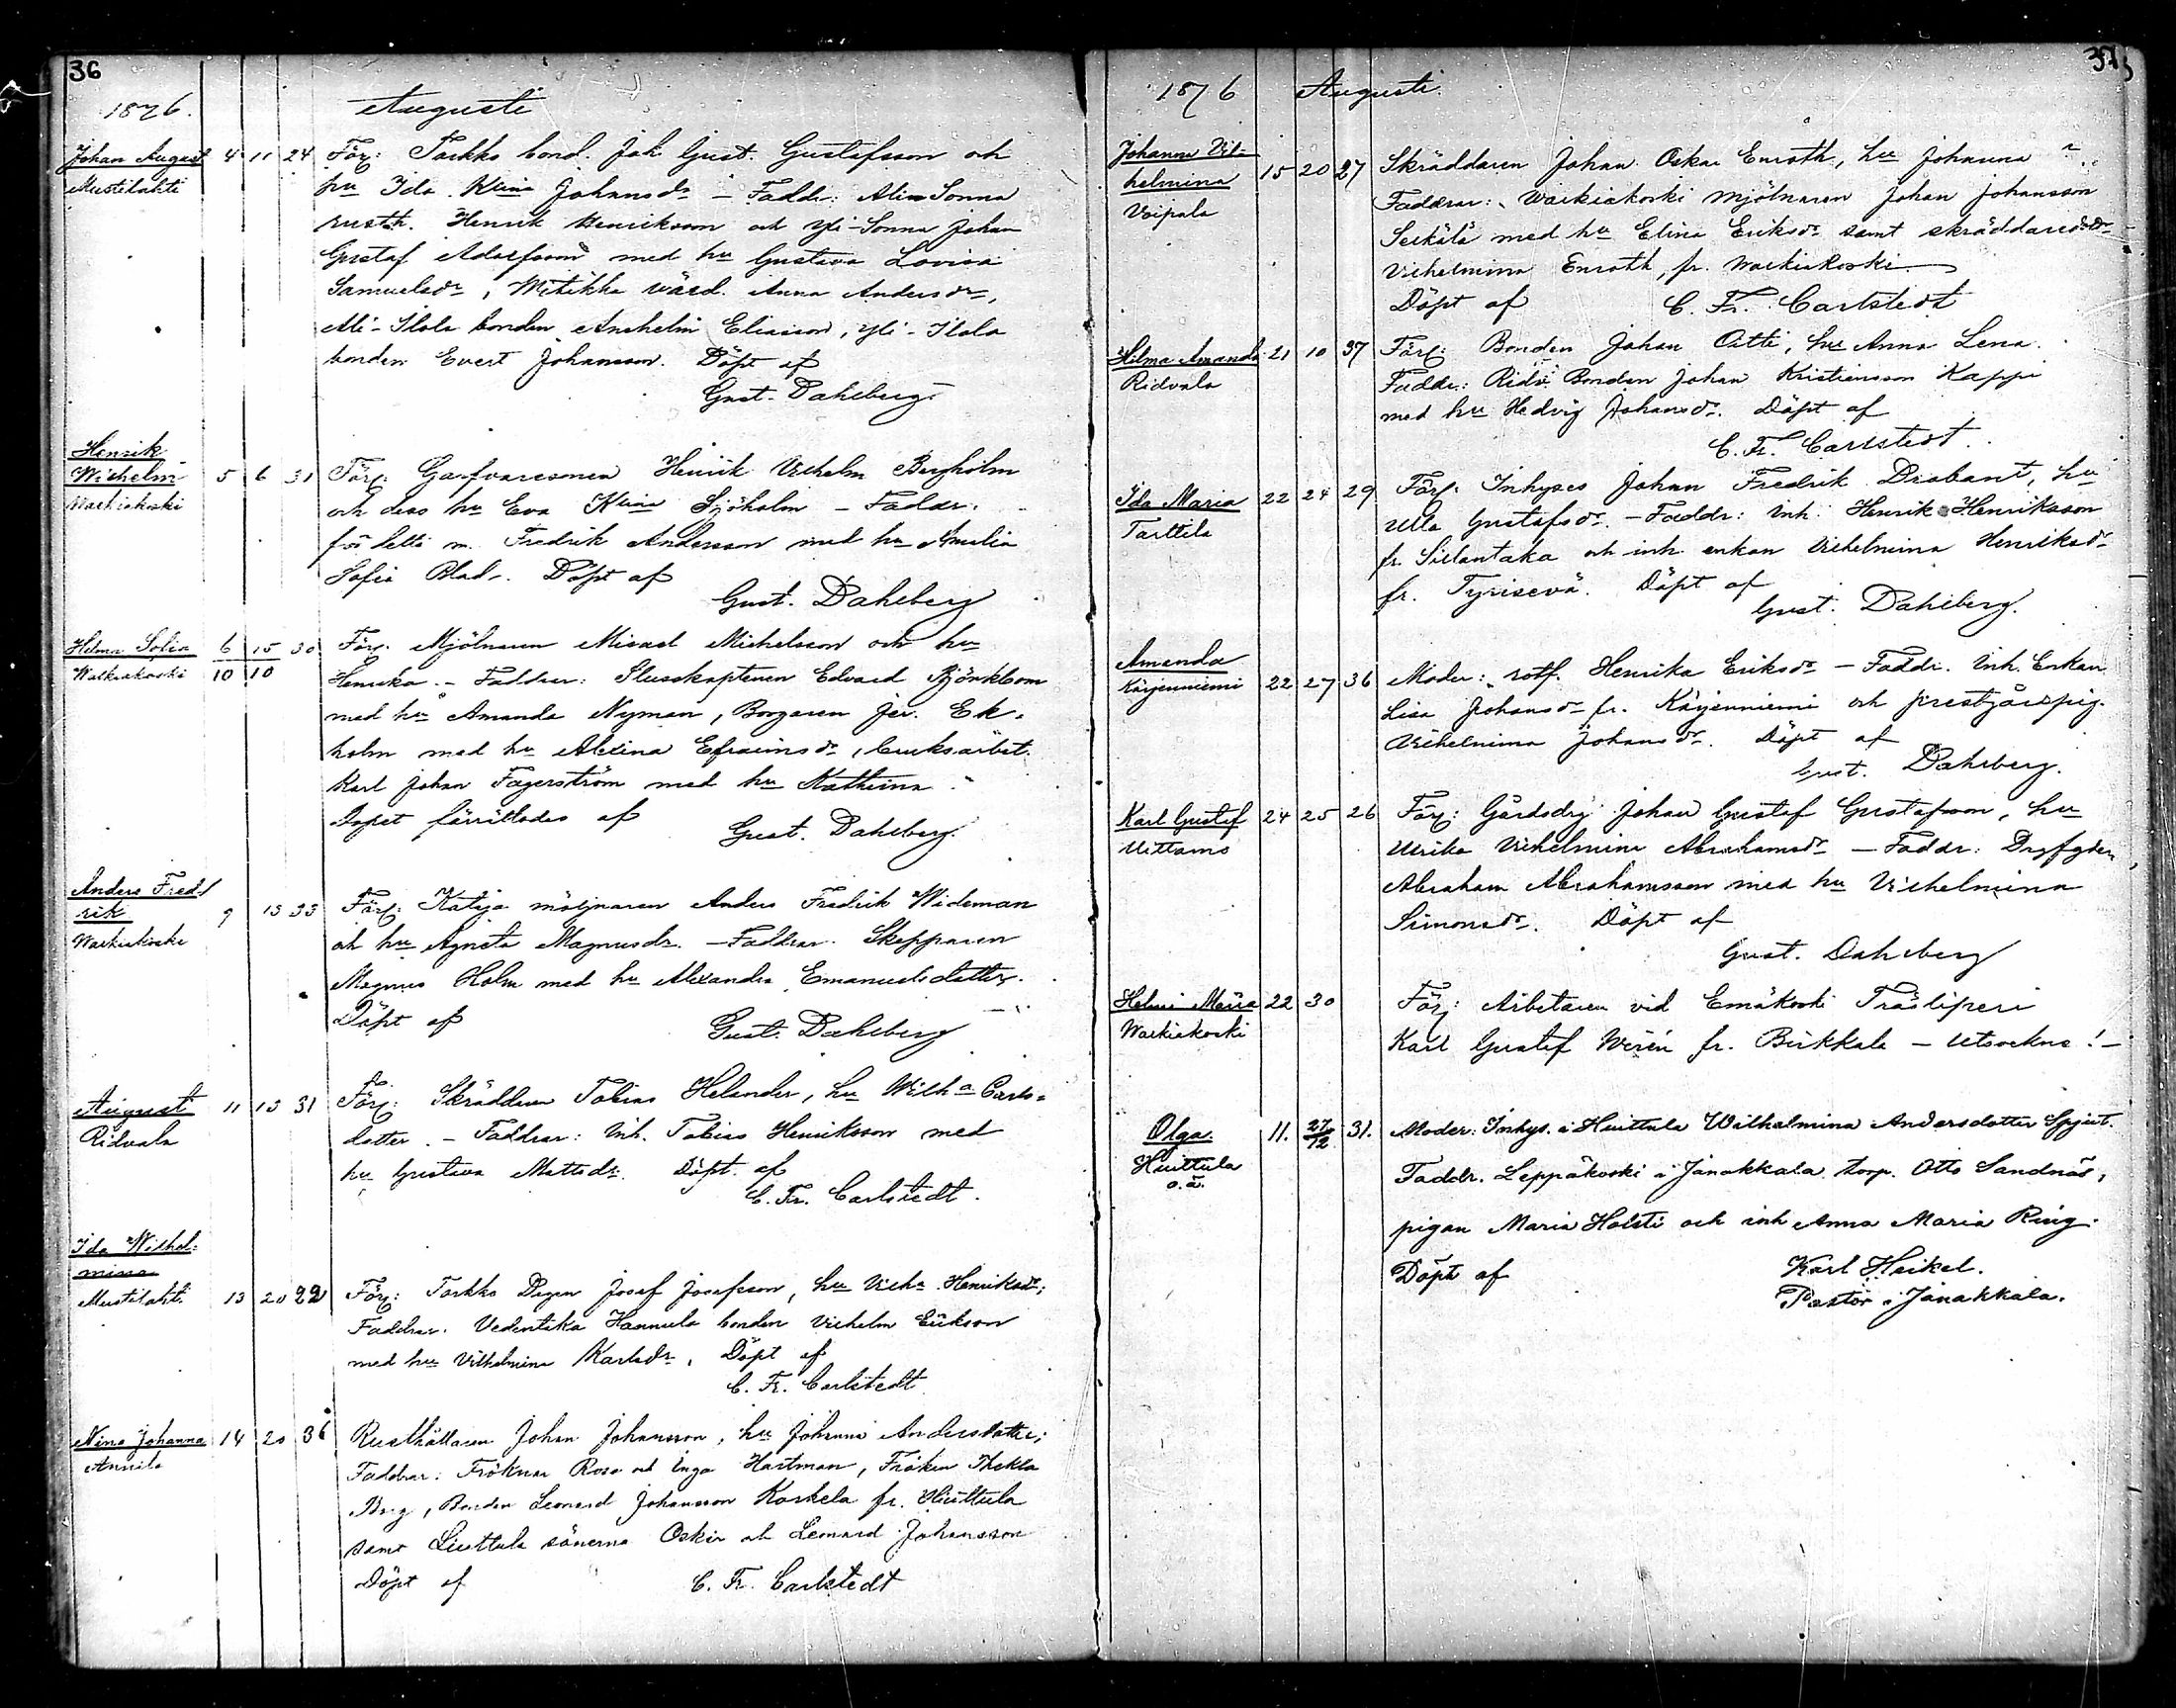 36
1876.
Augusti
Johan August 4 11 24 Förj: Tarkko bond. Joh. Gust. Gustafsson och
Mustilahti hu Ida Kaina Johansdr – Faddr: Ali-Sonna
rusth. Henrik Henriksson och Yli-Sonna Johan
Gustaf Adolfsson med hu Gustava Lovisa
Samuelsdr, Mitikka värd. Anna Andersdr,
Ali-Ilola bonden Anshelm Eliasson, Yli-Ilola
bonden Evert Johansson. Döpt af
Gust. Dahlberg
Henrik
Wilhelm 5 6 31 Förj. Garfvaresonen Henrik Vilhelm Bergholm
Walkiakoski och dess hu Eva Kaina Sjöholm – Faddr.
Fredrik Andersson med hu Amalia
Sofia Blad. Döpt af
Gust. Dahlberg
Hilma Sofia 6/10 15/10 30 Förj. Mjölnaren Michelsson och hu
Walkiakoski Henrika. – Faddrar: Slusskaptenen Edvard Björkbom
med hu Amanda Nyman, Borgaren Jer. Ek-
holm med hu Alexina Efraimsdr, bruksarbet.
Karl Johan Fagerström med hu Katharina
Dopet förrättades af
Gust. Dahlberg.
Anders Fred-
rik 9 13 33 Förj: Kataja mölnaren Anders Fredrik Wideman
Walkiakoski och hu Agneta Magnusdr. – Faddrar. Skepparen
Magnus Holm med hu Alexandra Emanuelsdotter.
Döpt af
Gust. Dahlberg
August 11 13 31 Förj: Skräddaren Tobias Helander, hu Wilha Carls-
Ridvala dotter. – Faddrar: Inh. Tobias Henriksson med
hu Gustava Mattsdr. Döpt af
C. Fr. Carlstedt.
Ida Wilhel-
mina
Mustilahti 13 20 22 Förj: Tarkko Josef Josefsson, hu Vilha Henriksdr;
Faddrar. Vedentaka Hannula bonden Vilhelm Eriksson
med hu Vilhelmina Karlsdr, Döpt af
C. Fr. Carlstedt
Nina Johanna 14 20 36 Rusthållaren Johan Johansson, hu Johanna Andersdotter;
Annila Faddrar: Fröknar Rosa och Inga Hartman, Fröken Thekla
Berg, Bonden Leonard Johansson Koskela fr. Huittula
samt Liuttula sönerna Oskar och Leonard Johansson
Döpt af C. Fr. Carlstedt
37
1876 Augusti.
Johanna Vil-
helmina 15 20 27 Skräddaren Johan Oskar Enroth, hu Johanna
Voipala Faddrar: Walkiakoski Mjölnaren Johan Johansson
Seikälä med hu Elina Eriksdr samt skräddaredotr
Vilhelmina Enroth, fr. Walkiakoski
Döpt af C. Fr. Carlstedt
Hilma Amanda 21 10 37 Förj: Bonden Johan Oitti, hu Anna Lena.
Ridvala Faddr: Ridv. Bonden Johan Kristiansson Kappi
med hu Hedvig Johansdr. Döpt af
C. Fr. Carlstedt.
Ida Maria 22 24 29 Förj. Inhyses Johan Fredrik Drabant, hu
Tarttila Ulla Gustafsdr. – Faddr: Inh. Henrik Henriksson
fr. Sillantaka och inh. enkan Vilhelmina Henriksdr
fr. Tyrisevä. Döpt af
Gust. Dahlberg.
Amanda
Kärjenniemi 22 27 36 Moder: rotf. Henrika Eriksdr – Faddr. Inh. Enkan
Lisa Johansdr fr. Kärjenniemi och prestgårdspig.
Vilhelmina Johansdr. Döpt af
Gust. Dahlberg.
Karl Gustaf 24 25 26 Förj: Gårdsdrg Johan Gustaf Gustafsson, hu
Uittamo Ulrika Vilhelmina Abrahamsdr – Faddr:
Abraham Abrahamsson med hu Vilhelmina
Simonsdr. Döpt af
Gust. Dahlberg
Helmi Maria 22 30 Förj: Arbetaren vid Emäkoski Träsliperi
Walkiakoski Karl Gustaf Weren fr. Birkkala – utsockne! –
Olga. 11. 27/12. 31. Moder: Inhys. i Huittula Wilhelmina Andersdotter Spjut.
Huittula Faddr. Leppäkoski i Janakkala torp. Otto Sandnäs,
o.ä. pigan Maria Holsti och inh Anna Maria Ring.
Döpt af Karl Heikel.
Pastor i Janakkala.